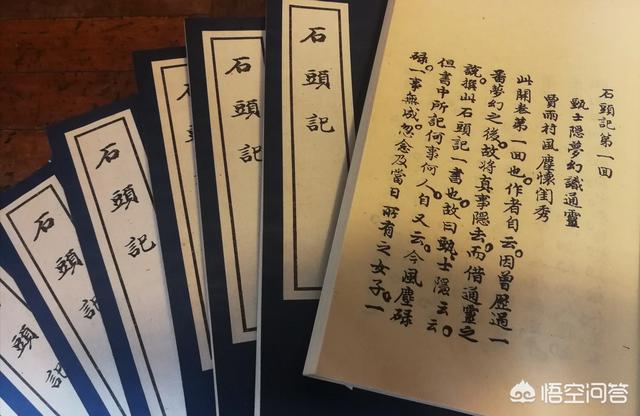 石頭記第一回
甄士隐夢幻識通靈
賈雨村風塵懷閨秀
此開卷第一回也。作者自云。因曾歷過一
番夢幻之後。故將真事隐去。而借通靈之
說。撰此石頭記一書也。故曰甄士隐云云。
但書中所記何事何人。自又云。今風塵碌
碌。一事無成。忽念及當日所有之女子。一
石頭記
石頭記
石
石頭記
石頭記
頭記
悟空问答